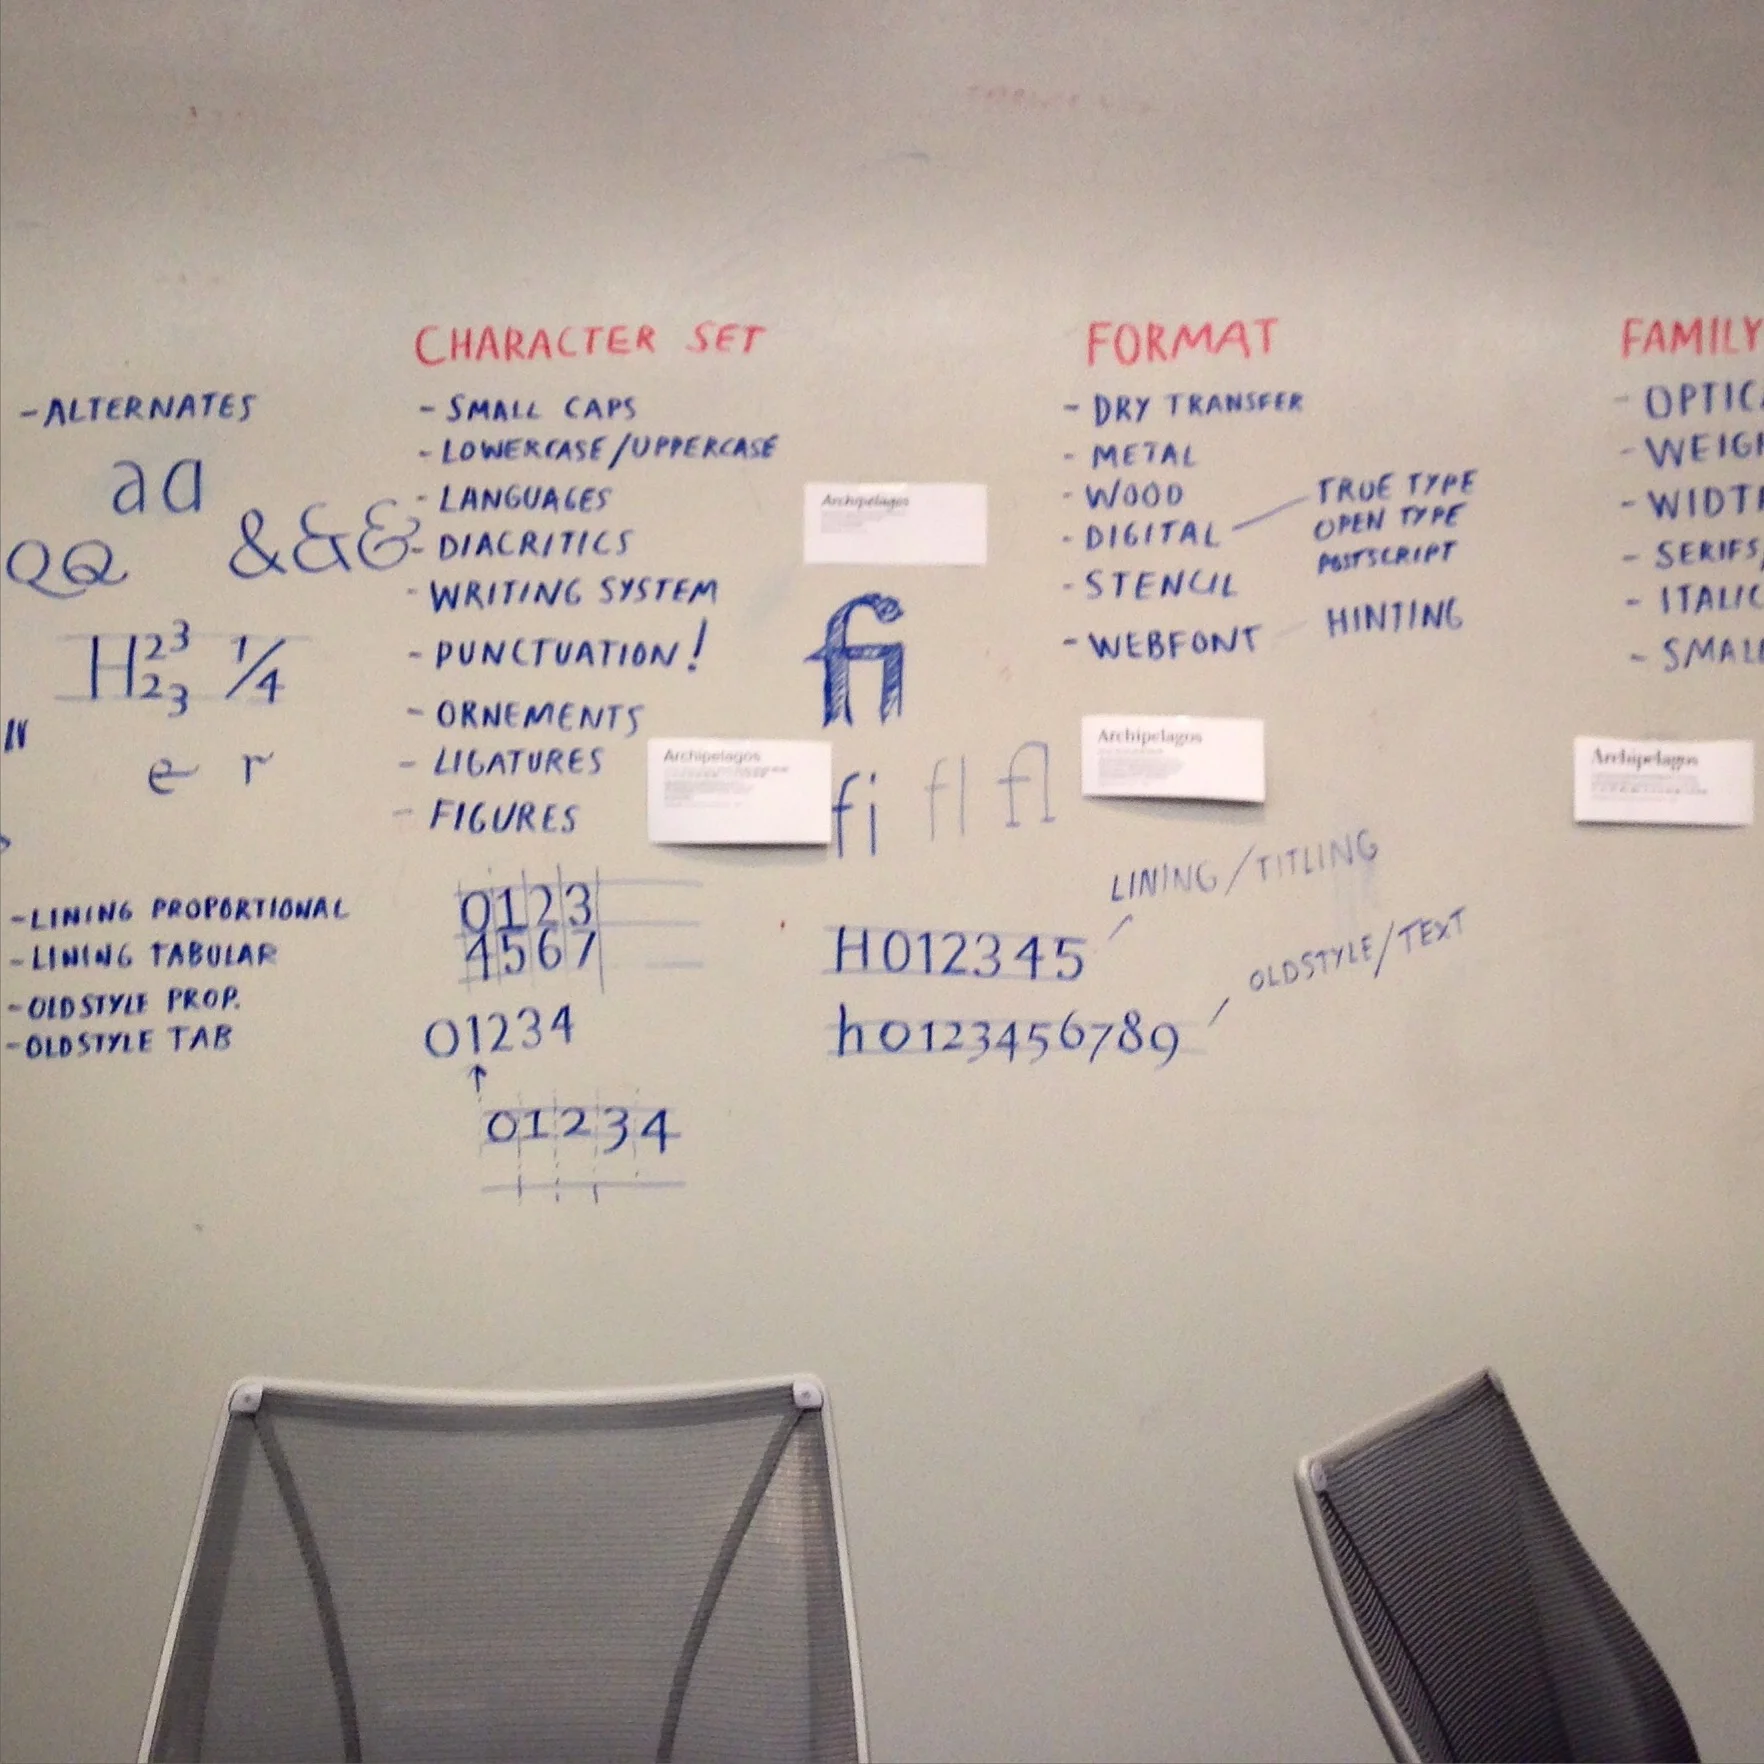 CHARACTER SET
- SMALL CAPS
- LOWERCASE/UPPERCASE
- LANGUAGES
- DIACRITICS
- WRITING SYSTEM
- PUNCTUATION!
- ORNEMENTS
- LIGATURES
- FIGURES
- ALTERNATES
aa
QQ &&&
H 23 23 1/4
e r
- LINING PROPORTIONAL
- LINING TABULAR
- OLDSTYLE PROP.
- OLDSTYLE TAB
0123
4567
01234
01234
Archipelagos
fi
Archipelagos
fi fl fl
H012345
LINING/TITLING
h0123456789
OLDSTYLE/TEXT
FORMAT
- DRY TRANSFER
- METAL
- WOOD
- DIGITAL
TRUE TYPE
OPEN TYPE
POSTSCRIPT
- STENCIL
- WEBFONT
HINTING
Archipelagos
FAMILY
- OPTICA
- WEIGH
- WIDTH
- SERIFS/
- ITALIC
- SMALL
Archipelagos